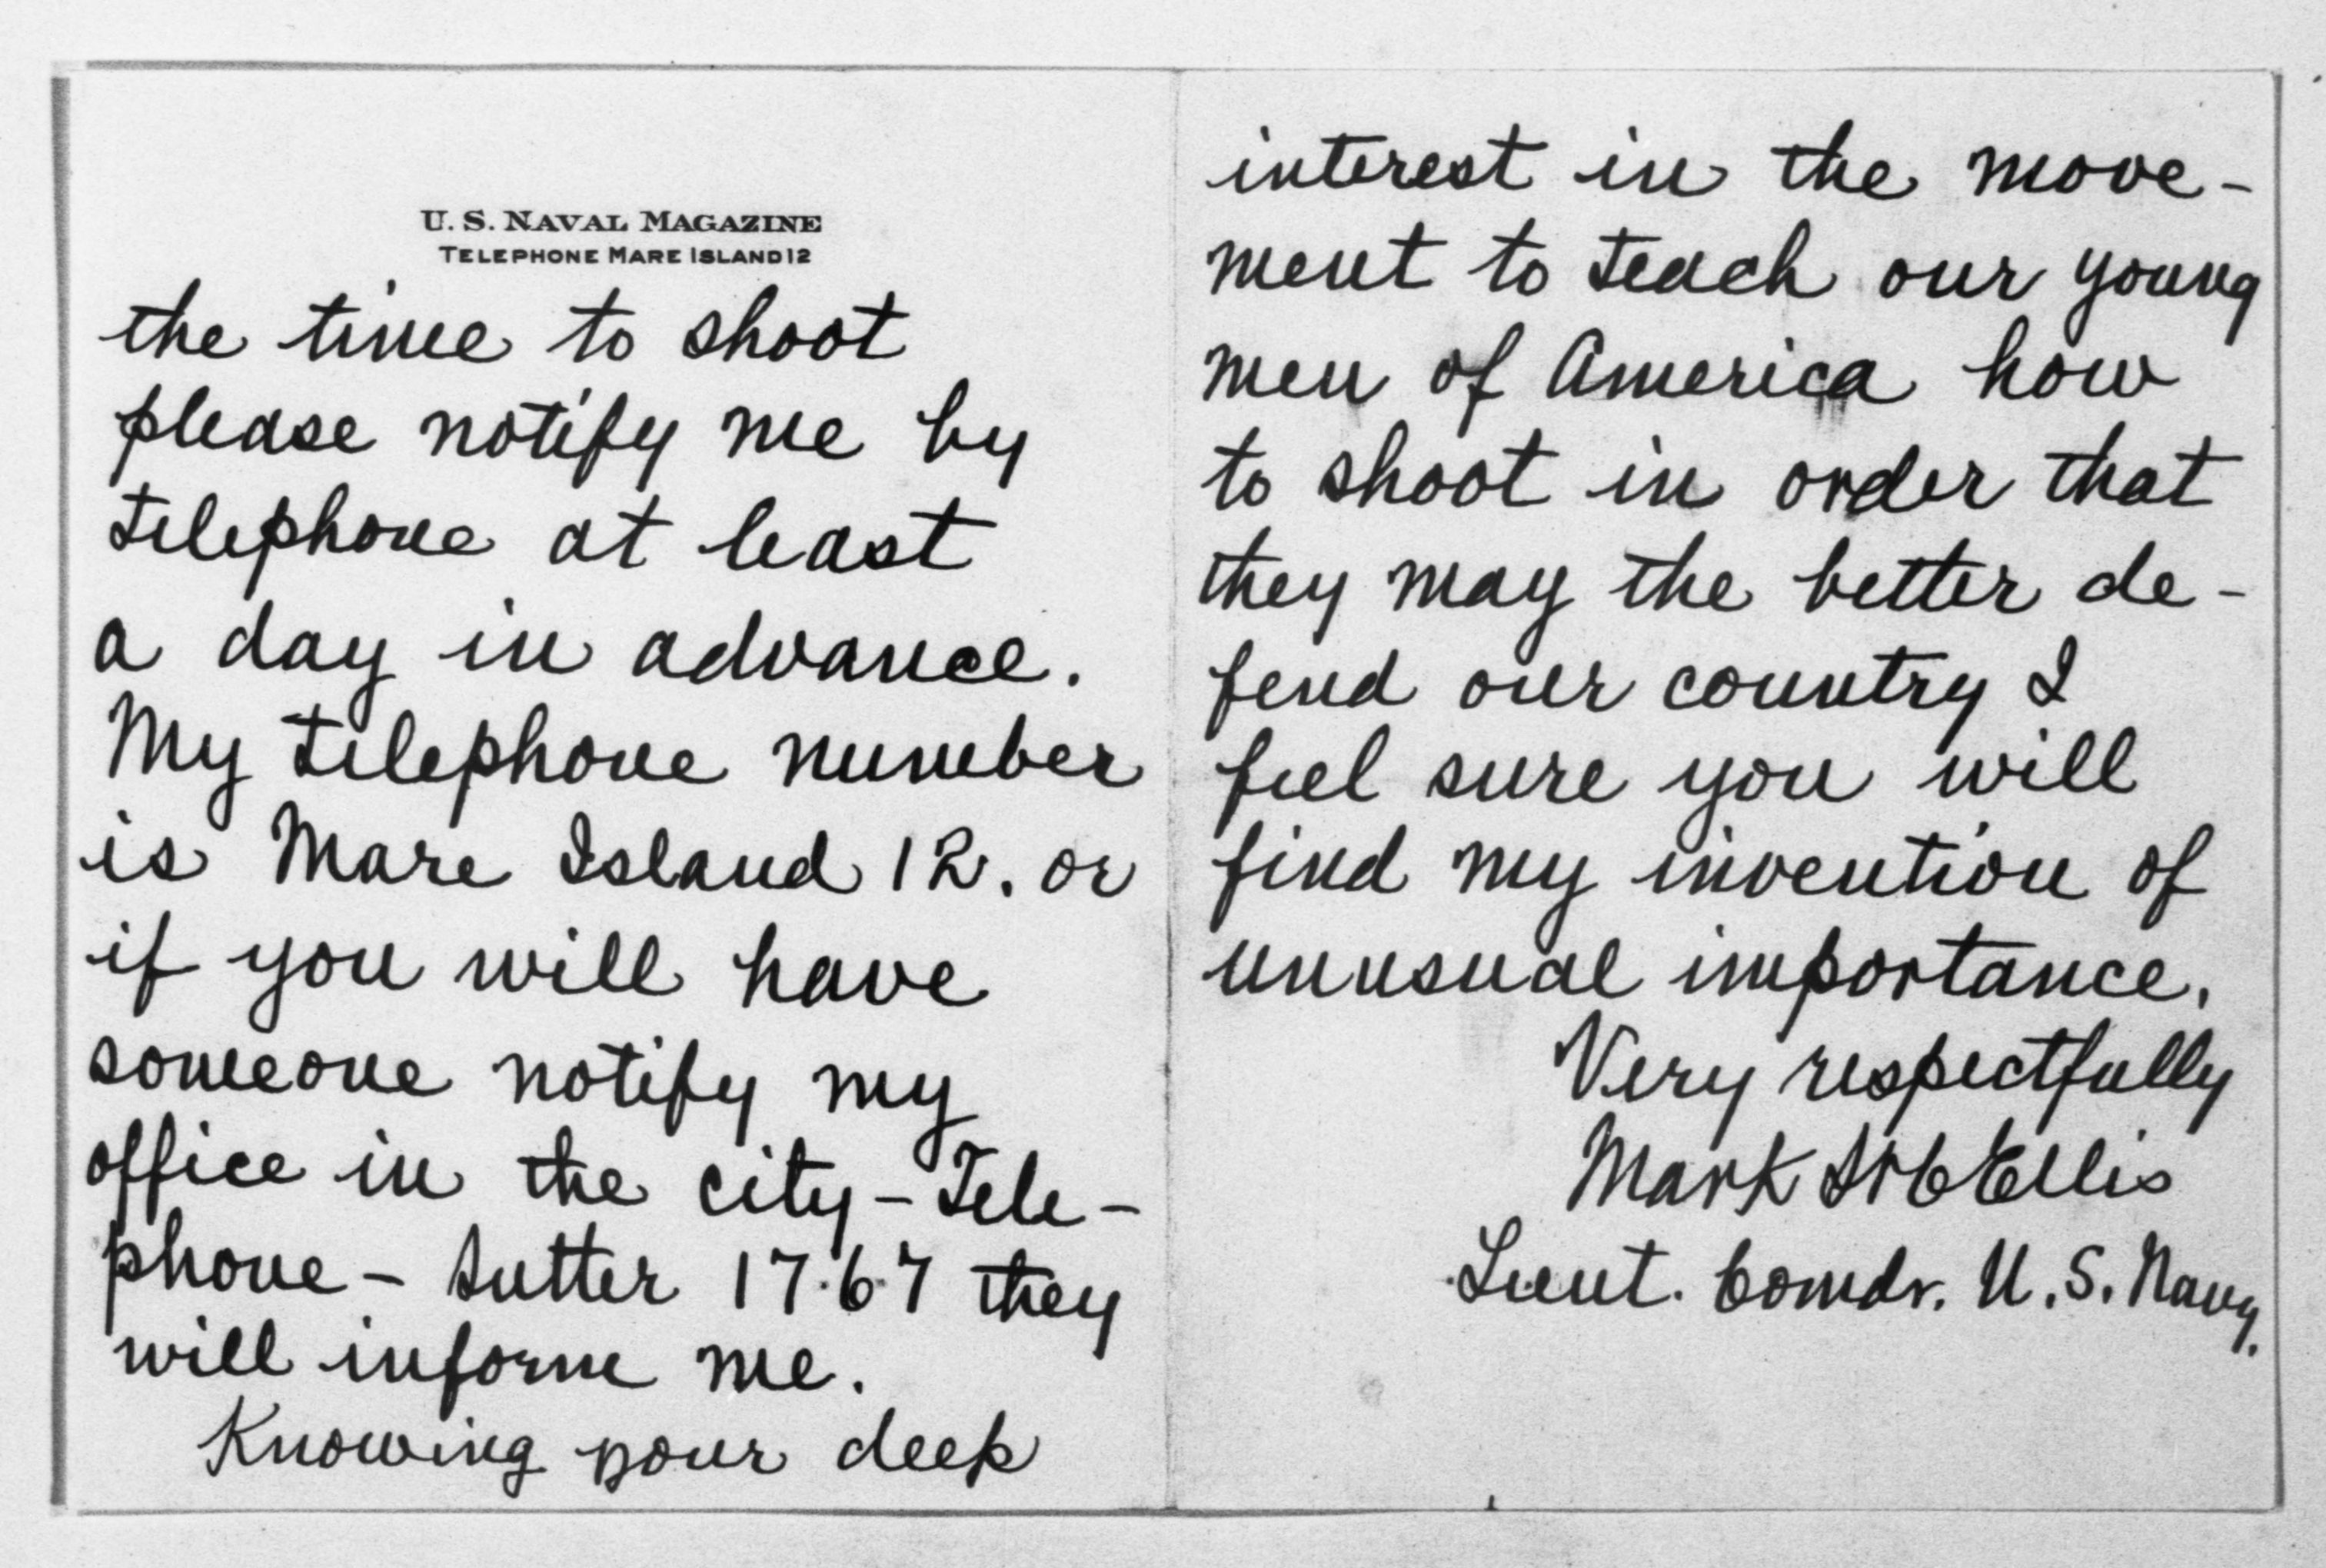 U. S. NAVAL MAGAZINE
TELEPHONE MARE ISLAND 12
the time to shoot
please notify me by
telephone at least
a day in advance.
My telephone number
is Mare Island 12. or
if you will have
someone notify my
office in the city – Tele-
phone – Sutter 1767 they
will inform me.
Knowing your deep
interest in the move-
ment to teach our young
men of America how
to shoot in order that
they may the better de-
fend our country I
feel sure you will
find my invention of
unusual importance.
Very respectfully
Mark St C Ellis
Lieut. Comdr. U.S. Navy.